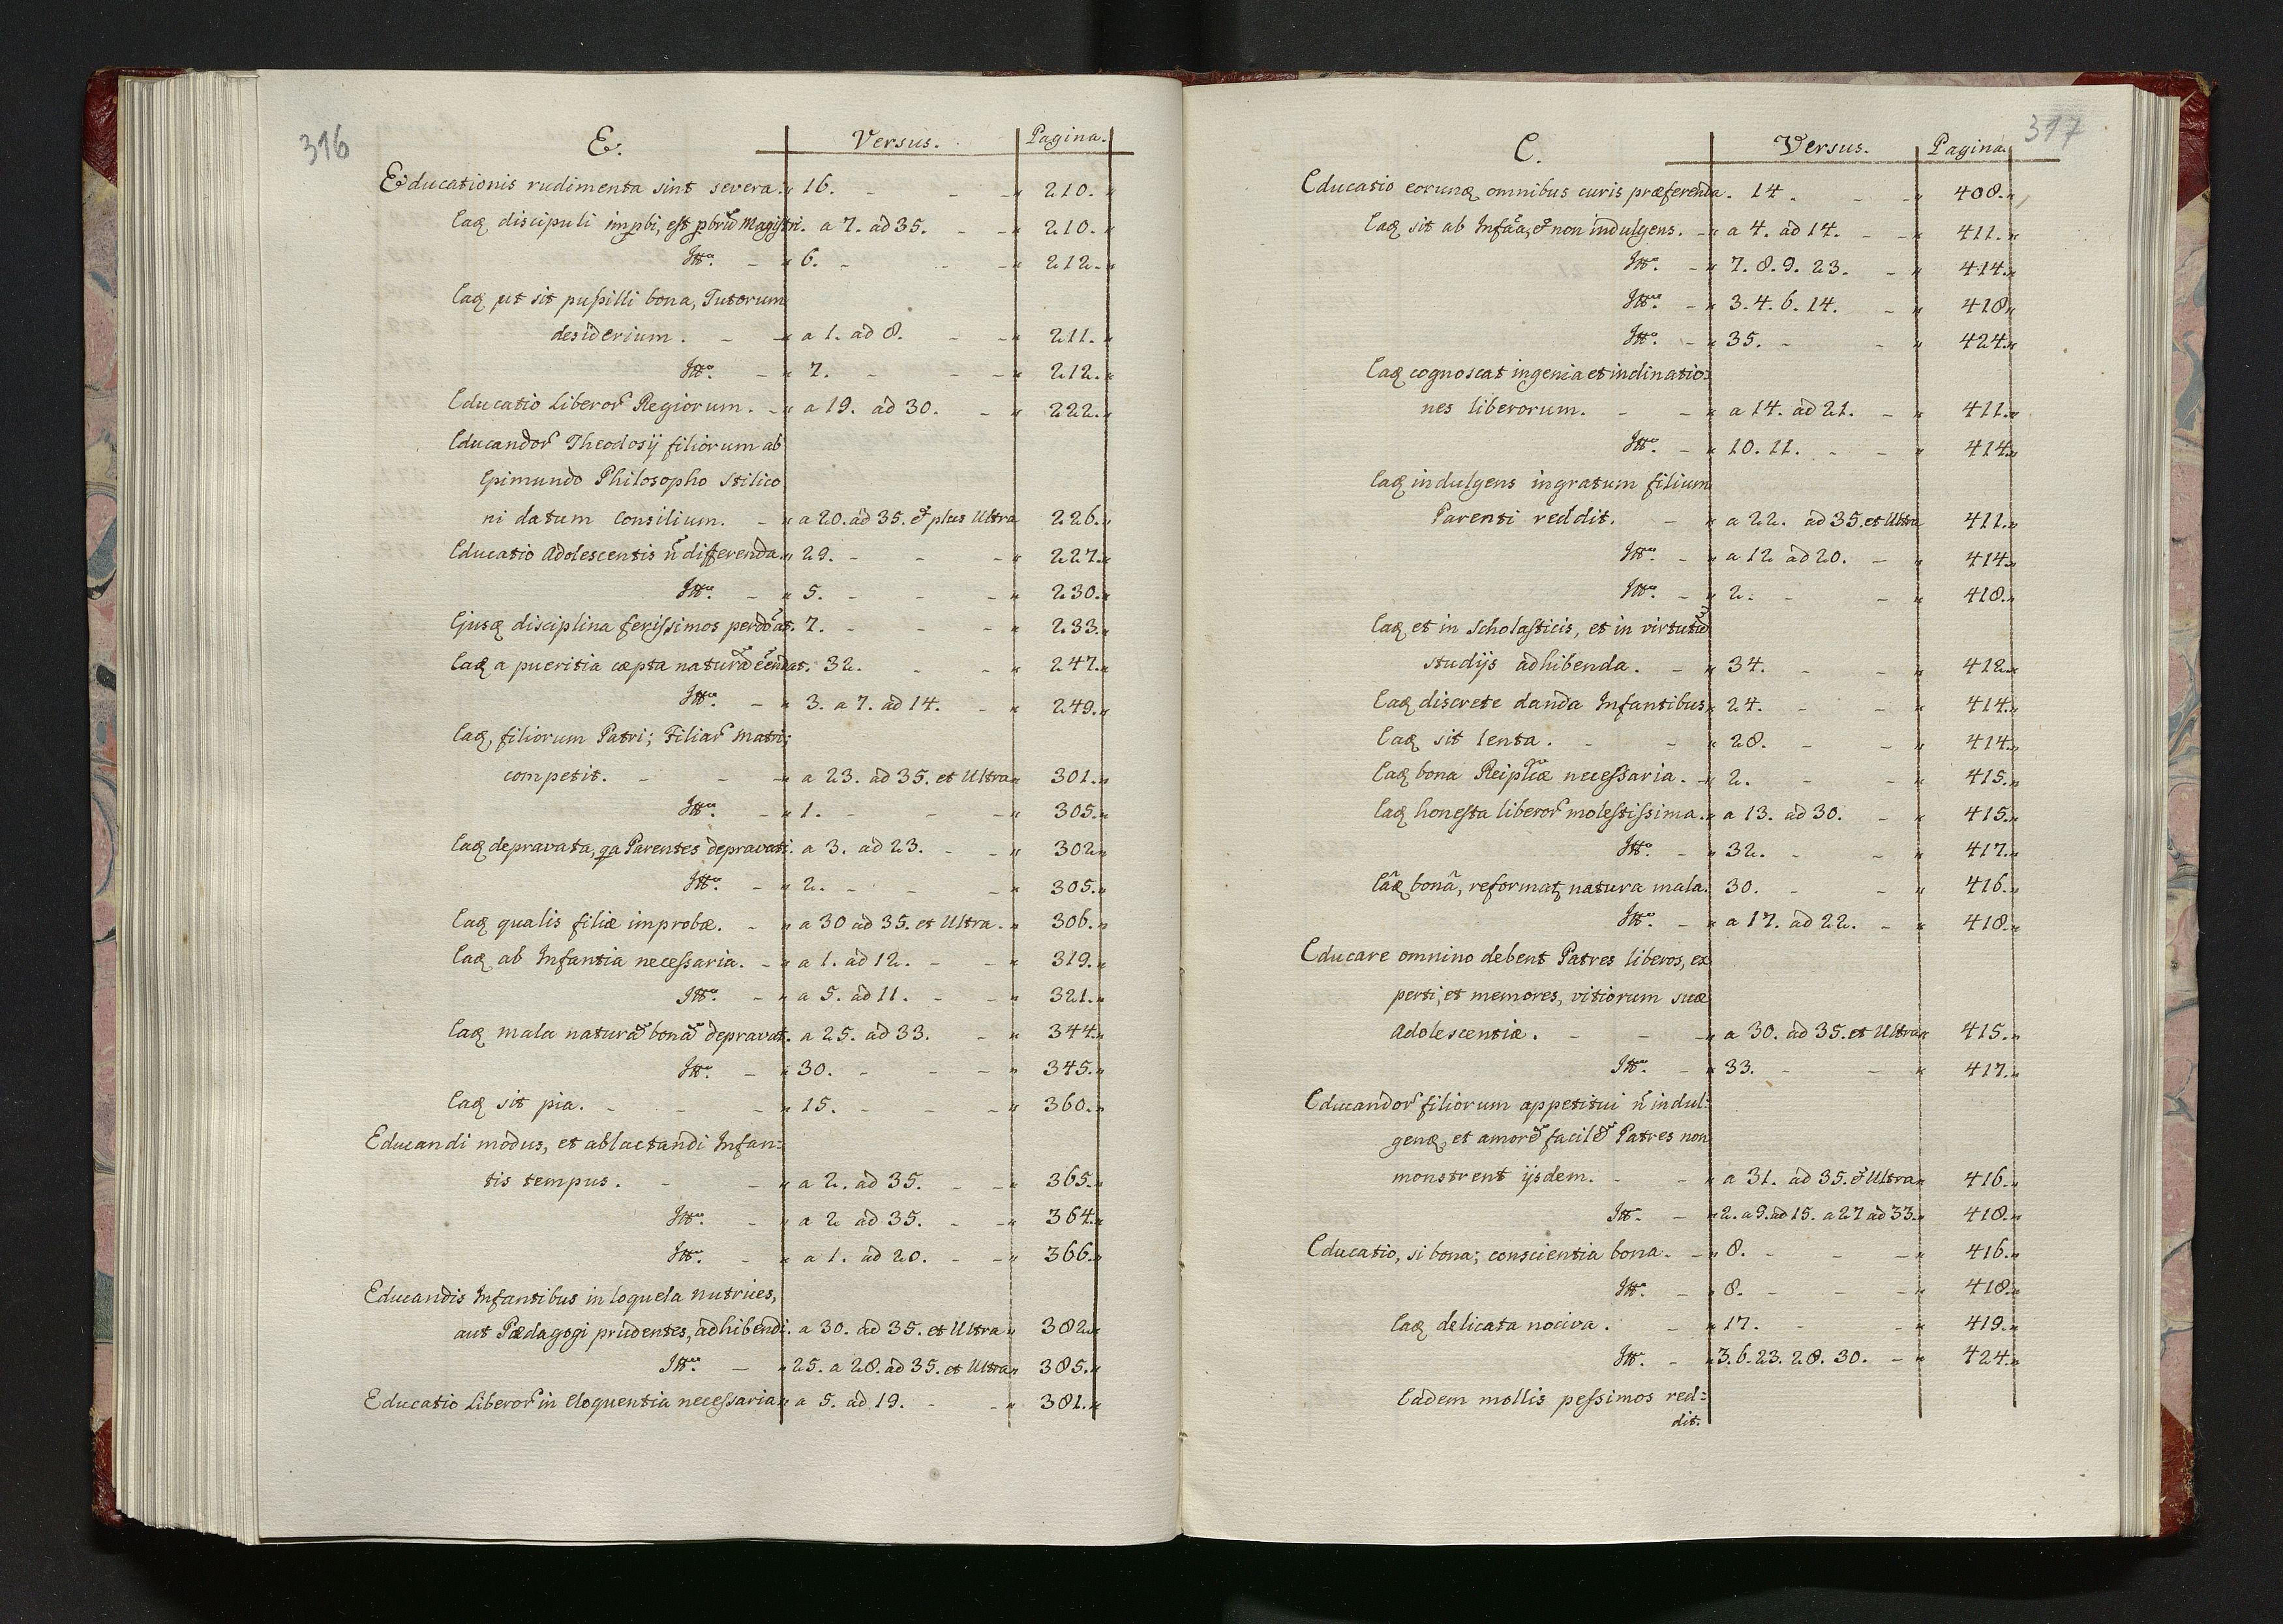 316
E. Versus. Pagina.
Educationis rudimenta sint severa. 16. 210.
Eaq discipuli impbi, est pbrũ Magistri. a 7. ad 35. 210.
Ittm. 6. 212.
Eaq ut sit pupilli bona, Tutorum
desiderium. a 1. ad 8. 211.
Ittm. 7. 212.
Educatio Liberor Regiorum. a 19. ad 30. 222.
Educandor Theodosij filiorum ab
Epimundo Philosopho Stilico
ni datum Consilium. a 20. ad 35. et plus Ultra 226.
Educatio Adolescentis ñ differenda. 29. 227.
Ittm. 5. 230.
Ejusq disciplina ferissimos perdõat. 7. 233.
Eaq a pueritia cæpta naturã eẽndat. 32. 247.
Ittm. 3. a 7. ad 14. 249.
Eaq, filiorum Patri; Filiar Matri;
competit. a 23. ad 35. et Ultra 301.
Ittm. 1. 305.
Eaq depravata, qa Parentes depravati. a 3. ad 23. 302
Ittm. 2. 305.
Eaq qualis filiæ improbæ. a 30 ad 35. et Ultra. 306.
Eaq ab Infantia necessaria. a 1. ad 12. 319.
Ittm. a 5. ad 11. 321.
Eaq mala naturã bonã depravat. a 25. ad 33. 344.
Ittm. 30. 345.
Eaq sit pia. 15. 360.
Educandi modus, et ablactandi Infan:
tis tempus. a 2. ad 35. 365.
Ittm. a 2 ad 35. 364.
Ittm. a 1. ad 20. 366.
Educandis Infantibus in loquela nutrices,
aut Pædagogi prudentes, adhibendi. a 30. ad 35. et Ultra 382.
Ittm. 25. a 28. ad 35. et Ultra 385.
Educatio Liberor in Eloquentia necessaria a 5. ad 19. 381.
317
E. Versus. Pagina.
Educatio eorunq omnibus curis præferenda. 14. 408.
Eaq sit ab Infãa, et non indulgens. a 4. ad 14. 411.
Ittm. 7. 8. 9. 23. 414.
Ittm. 3. 4. 6. 14. 418
Ittm. 35. 424.
Eaq cognoscat ingenia et inclinatio:
nes liberorum. a 14. ad 21. 411.
Ittm. 10. 11. 414.
Eaq indulgens ingratum filium
Parenti reddit. a 22. ad 35. et Ultra 411.
Ittm. a 12 ad 20. 414.
Ittm. 2. 418.
Eaq et in Scholasticis, et in virtutũ
studijs adhibenda. 34. 412.
Eaq discrete danda Infantibus. 24. 414.
Eaq sit lenta. 28. 414.
Eaq bona Reiplicæ necessaria. 2. 415.
Eaq honesta liberor molestissima. a 13. ad 30. 415.
Ittm. 32. 417.
Eãq bonâ, reformaz natura mala. 30. 416.
Ittm. a 17. ad 22. 418.
Educare omnino debent Patres liberos, ex
perti, et memores, vitiorum suæ
Adolescentiæ. a 30. ad 35. et Ultra 415.
Ittm. 33. 417.
Educandor filiorum appetitui ñ indul:
genq, et amorẽ facilẽ Patres non
monstrent ijsdem. a 31. ad 35. et Ultra 416.
Ittm. 2. a 9. ad 15. a 27 ad 33. 418.
Educatio, si bona; conscientia bona. 8. 416.
Ittm. 8. 418.
Eaq delicata nociva. 17. 419.
Ittm. 3. 6. 23. 28. 30. 424.
Eadem mollis pessimos red:
dit.